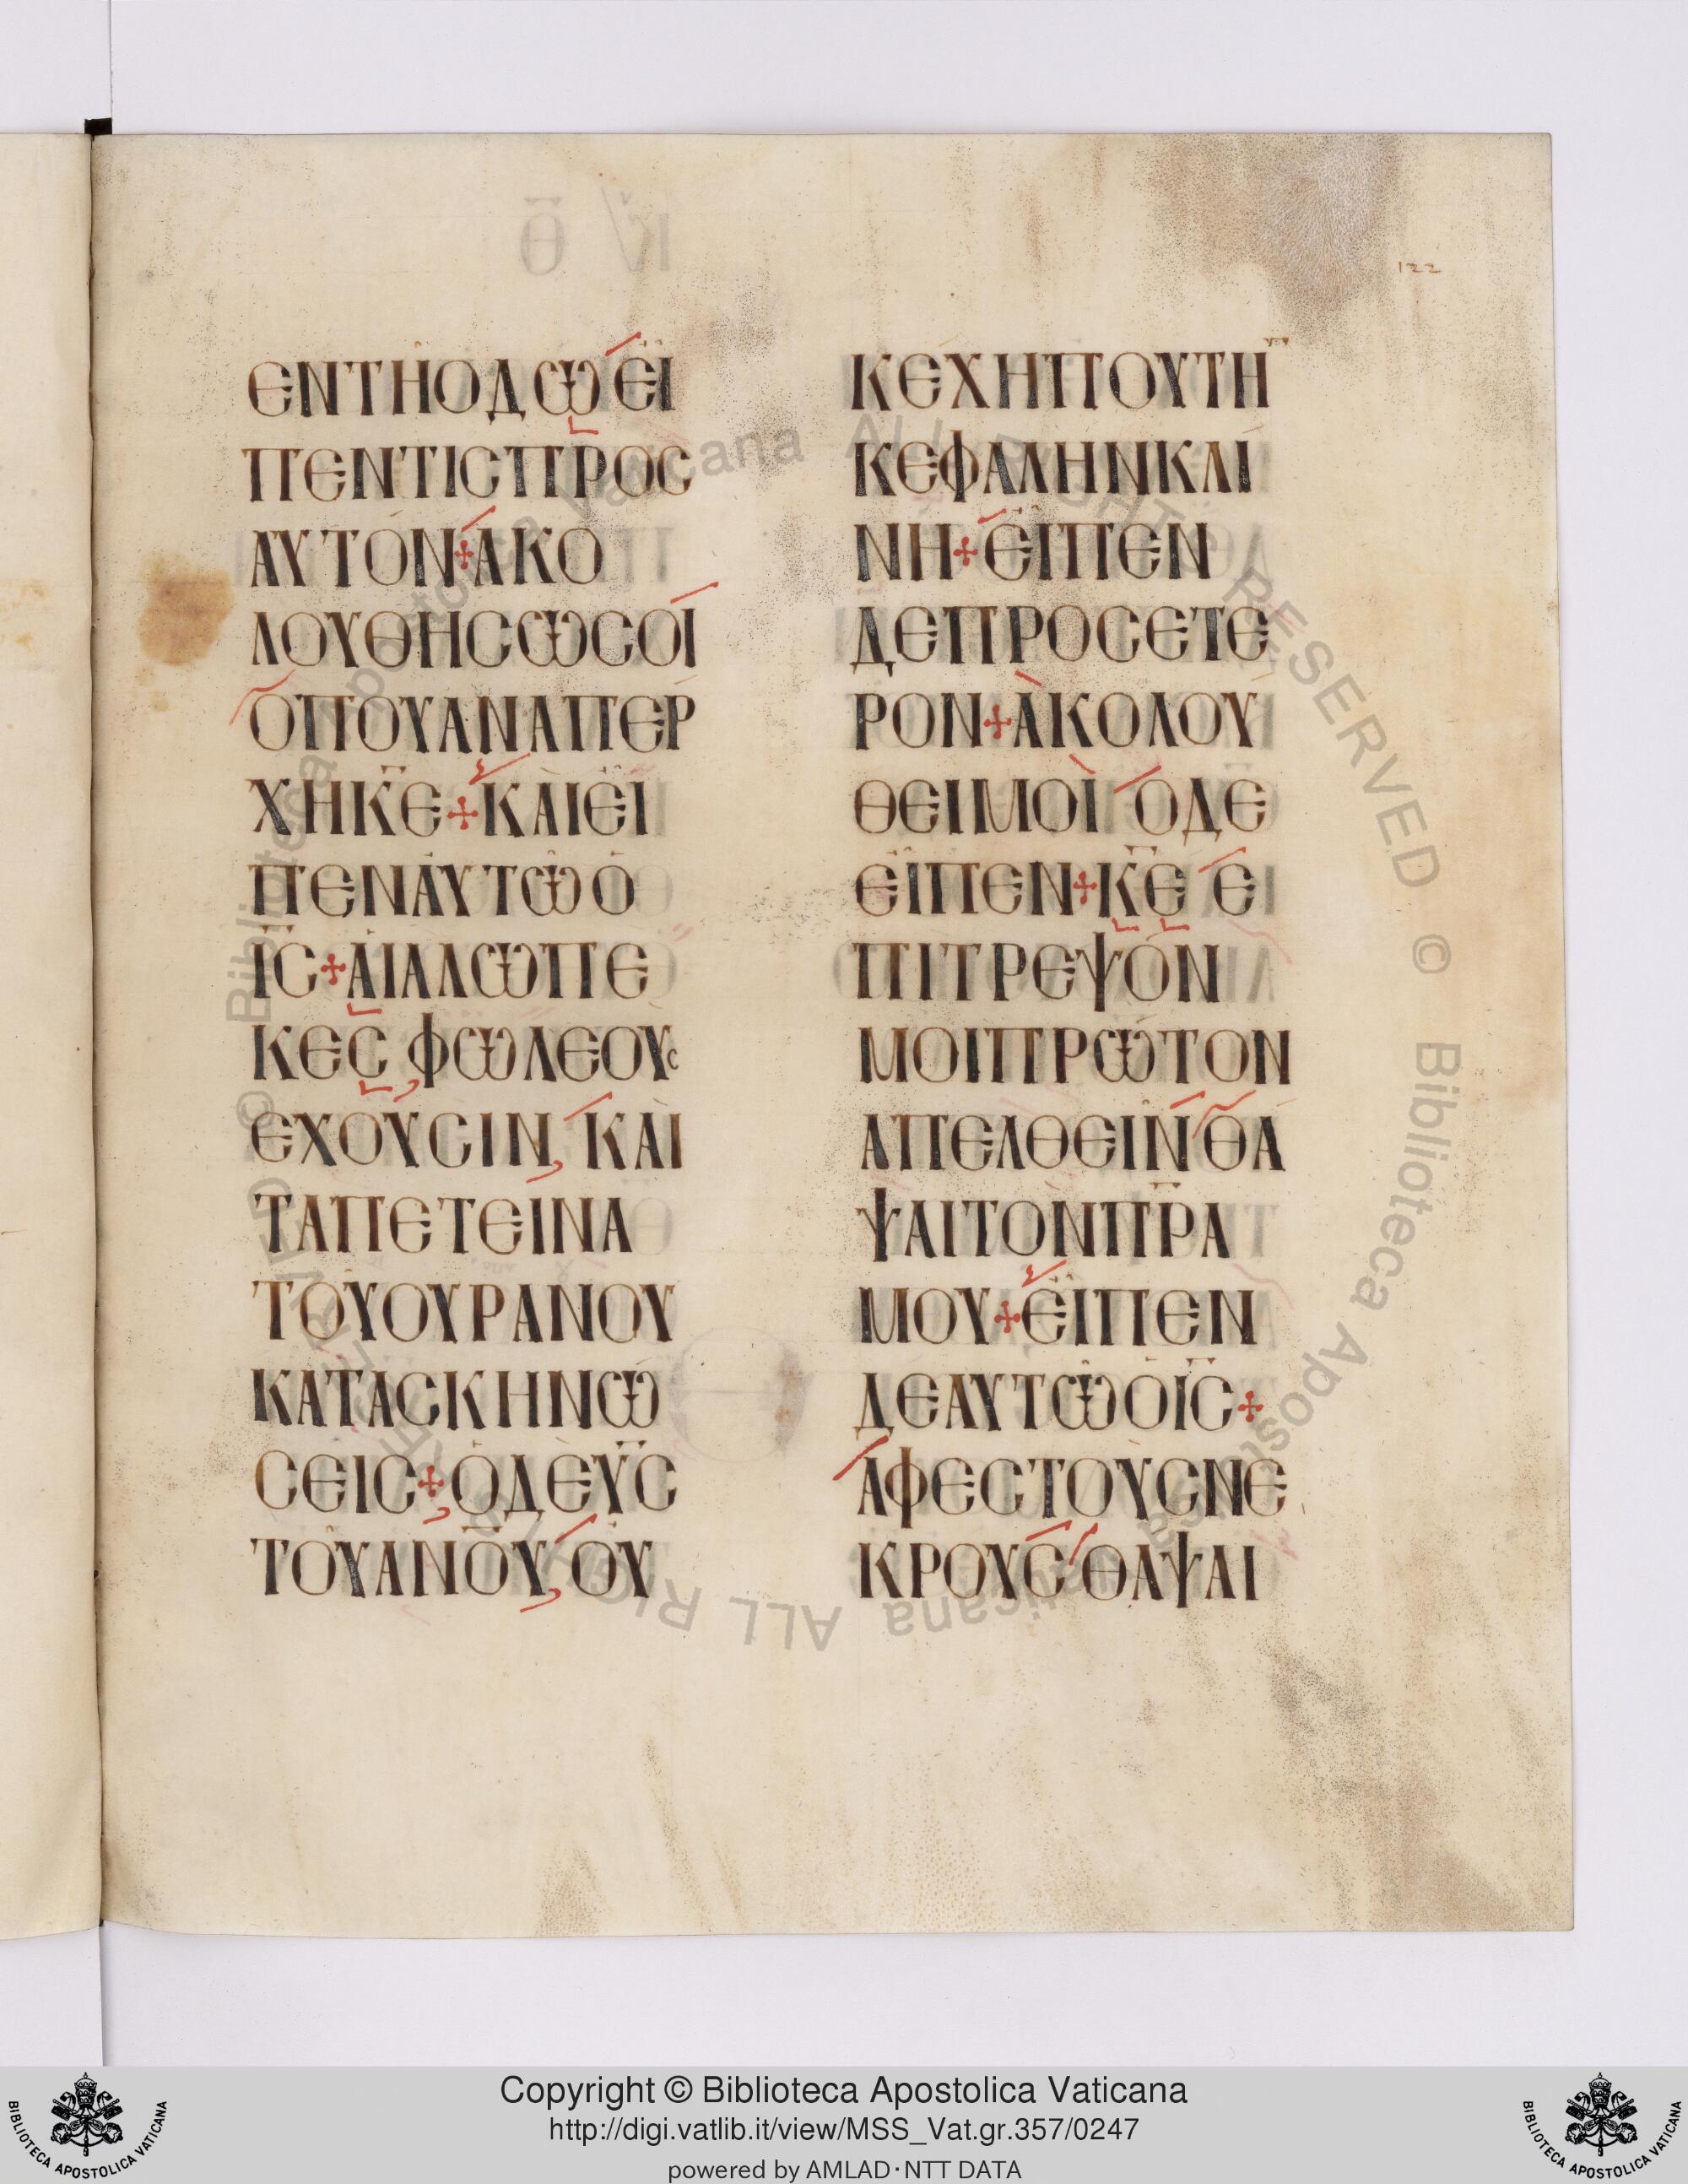 122
ΕΝΤΗΟΔΩΕΙ
ΠΕΝΤΙϹΠΡΟϹ
ΑΥΤΟΝ+ΑΚΟ
ΛΟΥΘΗϹΩϹΟΙ
ΟΠΟΥΑΝΑΠΕΡ
ΧΗΚ̅Ε̅+ΚΑΙΕΙ
ΠΕΝΑΥΤΩΟ
Ι̅Ϲ̅+ΑΙΑΛΩΠΕ
ΚΕϹ ΦΩΛΕΟΥϹ
ΕΧΟΥϹΙΝ, ΚΑΙ
ΤΑΠΕΤΕΙΝΑ
ΤΟΥΟΥΡΑΝΟΥ
ΚΑΤΑϹΚΗΝΩ
ϹΕΙϹ+ΟΔΕΥ̅Ϲ̅
ΤΟΥΑ̅Ν̅Ο̅Υ̅, ΟΥ
ΚΕΧΗΠΟΥΤΗ̅
ΚΕΦΑΛΗΝΚΛΙ
ΝΗ+ΕΙΠΕΝ
ΔΕΠΡΟϹΕΤΕ
ΡΟΝ+ΑΚΟΛΟΥ
ΘΕΙΜΟΙ ΟΔΕ
ΕΙΠΕΝ+Κ̅Ε̅ Ε
ΠΙΤΡΕΨΟΝ
ΜΟΙΠΡΩΤΟΝ
ΑΠΕΛΘΕΙΝ ΘΑ
ΨΑΙΤΟΝΠ̅Ρ̅Α̅
ΜΟΥ+ΕΙΠΕΝ
ΔΕΑΥΤΩΟΙ̅Ϲ̅+
ΑΦΕϹΤΟΥϹΝΕ
ΚΡΟΥϹ ΘΑΨΑΙ
© Biblioteca Apostolica Vaticana ALL RIGHTS RESERVED
Copyright © Biblioteca Apostolica Vaticana
http://digi.vatlib.it/view/MSS_Vat.gr.357/0247
powered by AMLAD･NTT DATA
BIBLIOTECA APOSTOLICA VATICANA
BIBLIOTECA APOSTOLICA VATICANA